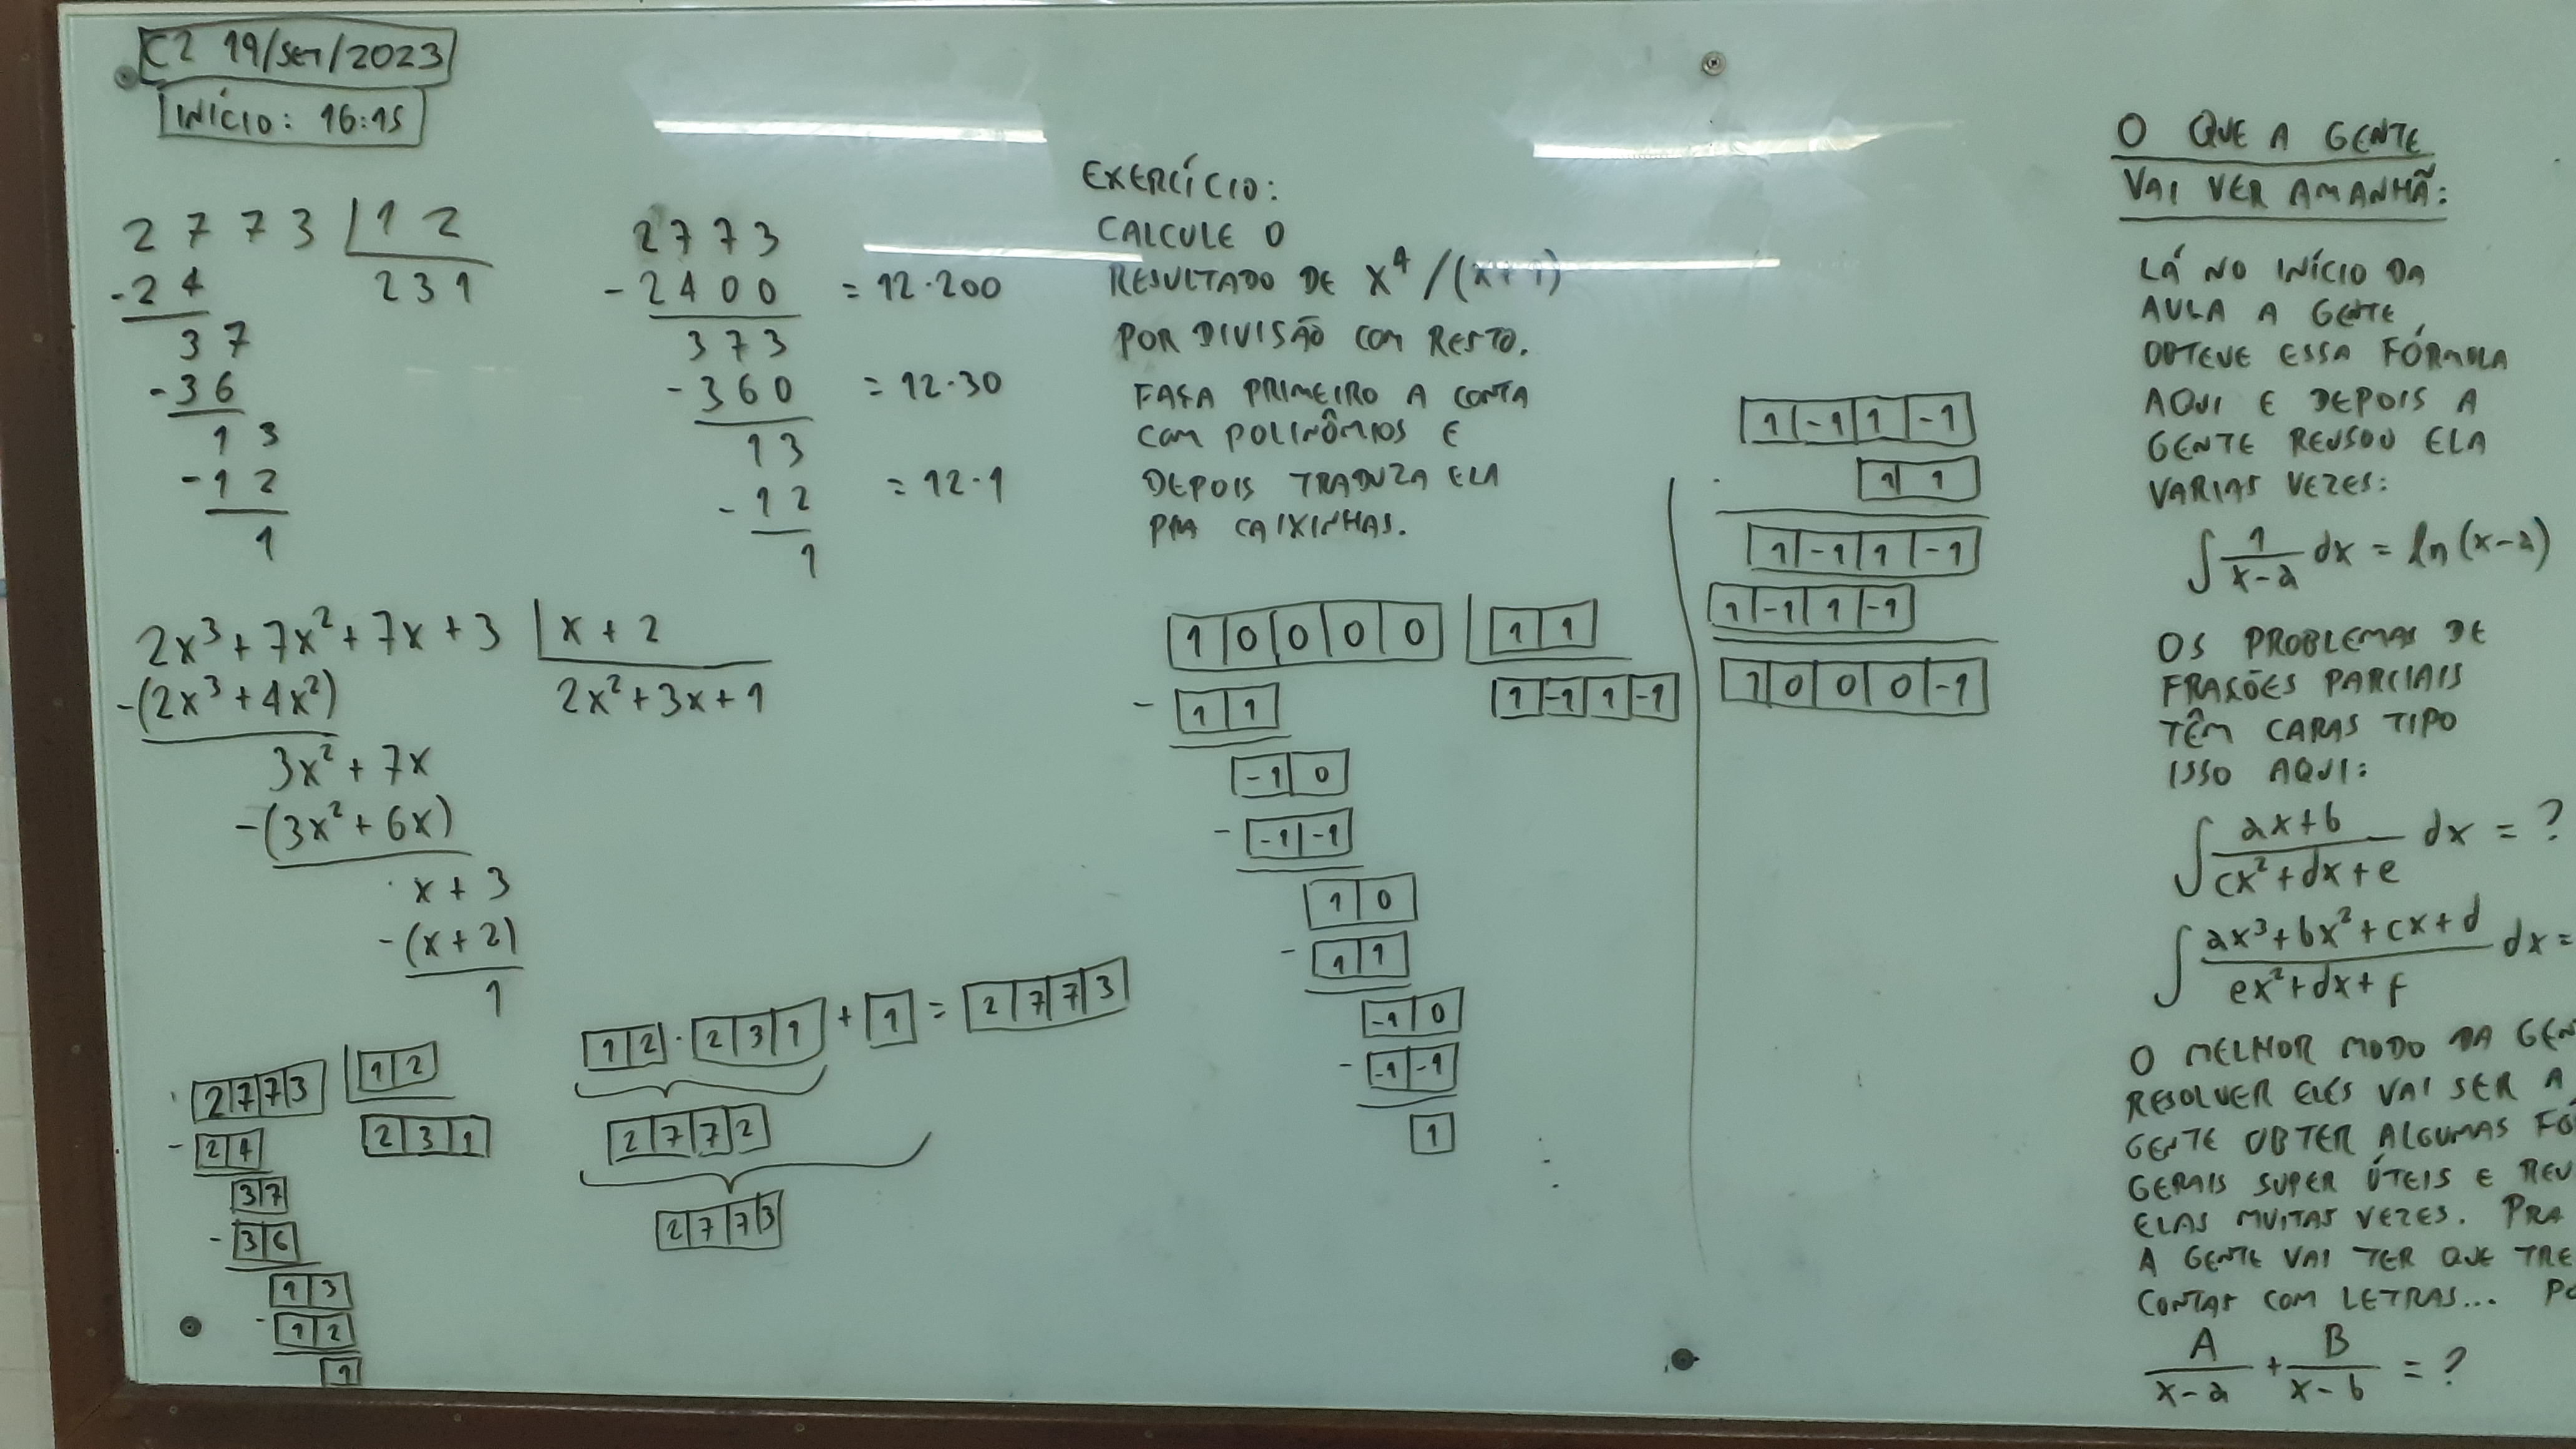 C2 19/SET/2023
INÍCIO: 16:15
2 7 7 3 | 1 2
-2 4   2 3 1
3 7
-3 6
1 3
-1 2
1
2773
-2400 = 12·200
373
-360 = 12·30
13
-12 = 12·1
1
2x³+7x²+7x+3 | x+2
-(2x³+4x²)   2x²+3x+1
3x²+7x
-(3x²+6x)
x+3
-(x+2)
1
|2|7|7|3| |1|2|
-|2|4|   |2|3|1|
|3|7|
-|3|6|
|1|3|
-|1|2|
|1|
|1|2|·|2|3|1|+|1|=|2|7|7|3|
|2|7|7|2|
|2|7|7|3|
EXERCÍCIO:
CALCULE O
RESULTADO DE x⁴/(x+1)
POR DIVISÃO COM RESTO.
FAÇA PRIMEIRO A CONTA
COM POLINÔMIOS E
DEPOIS TRADUZA ELA
PRA CAIXINHAS.
|1|0|0|0|0| |1|1|
-|1|1|   |1|-1|1|-1|
|-1|0|
-|-1|-1|
|1|0|
-|1|1|
|-1|0|
-|-1|-1|
|1|
|1|-1|1|-1|
· |1|1|
|1|-1|1|-1|
|1|-1|1|-1|
|1|0|0|0|-1|
O QUE A GENTE
VAI VER AMANHÃ:
LÁ NO INÍCIO DA
AULA A GENTE
OBTEVE ESSA FÓRMULA
AQUI E DEPOIS A
GENTE REUSOU ELA
VARIAS VEZES:
∫ 1/(x-a) dx = ln(x-a)
OS PROBLEMAS DE
FRAÇÕES PARCIAIS
TÊM CARAS TIPO
ISSO AQUI:
∫ (ax+b)/(cx²+dx+e) dx = ?
∫ (ax³+bx²+cx+d)/(ex²+dx+f) dx =
O MELHOR MODO DA GEN
RESOLVER ELES VAI SER A
GENTE OBTER ALGUMAS FÓ
GERAIS SUPER ÚTEIS E REU
ELAS MUITAS VEZES. PRA
A GENTE VAI TER QUE TRE
CONTAS COM LETRAS... PO
A/(x-a) + B/(x-b) = ?